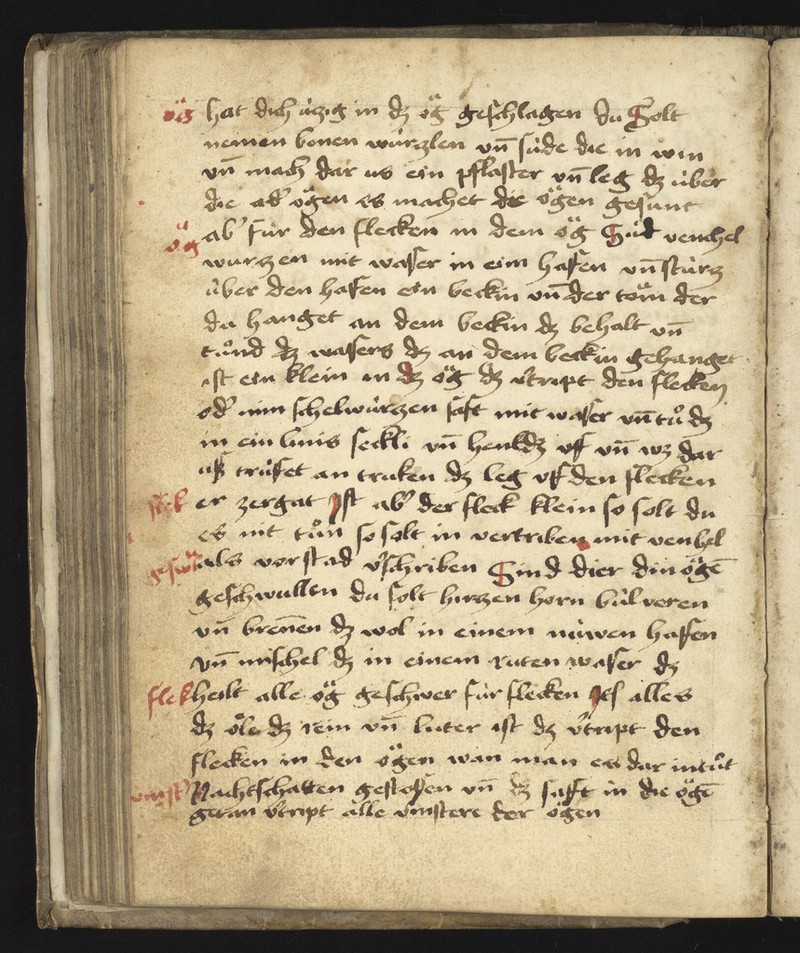 ог hat dich úzig in dz ög geschlagen du Solt
nemen bonen wúrzlen vn̄ súde die in win
vn̄ mach dar us ein pflaster vn̄ leg dz úber
die ad' ögen es machet die ögen gesunt
ög ab' fúr den flecken in dem ög Súd venchel
wurzen mit waser in eim hafen vn̄ stúrz
úber den hafen ein beckin vn̄ der tom der
da hanget an dem beckin dz behalt vn̄
tůnd dz wasers dz an dem beckin gehanget
ist ein klein in dz ög dz v'tript den flecken
od' nim schelwúrzen saft mit waser vn̄ tů dz
in ein linis seckli vn̄ henk dz uff vn̄ wz dar
uß trúfet an truken dz leg uff den flecken
flek er zergat Ist ab' der fleck klein so solt du
es nit tůn so solt in vertriben mit venhel
geswu als vor stad v'schriben Sind dier din ögē
geschwullen du solt hirzen horn búlveren
vn̄ brenen dz wol in einem núwen haffen
vn̄ mischel dz in einem raten waser dz
flek heilt alle ög geschwer fúr flecken Jtš alles
dz öle dz rein vn̄ luter ist dz v'tript den
flecken in den ögen wan man es dar in tůt
vinst' Nachtschatten gestossen vn̄ dz safft in die ögē
getan v'tript alle vinstere der ögen